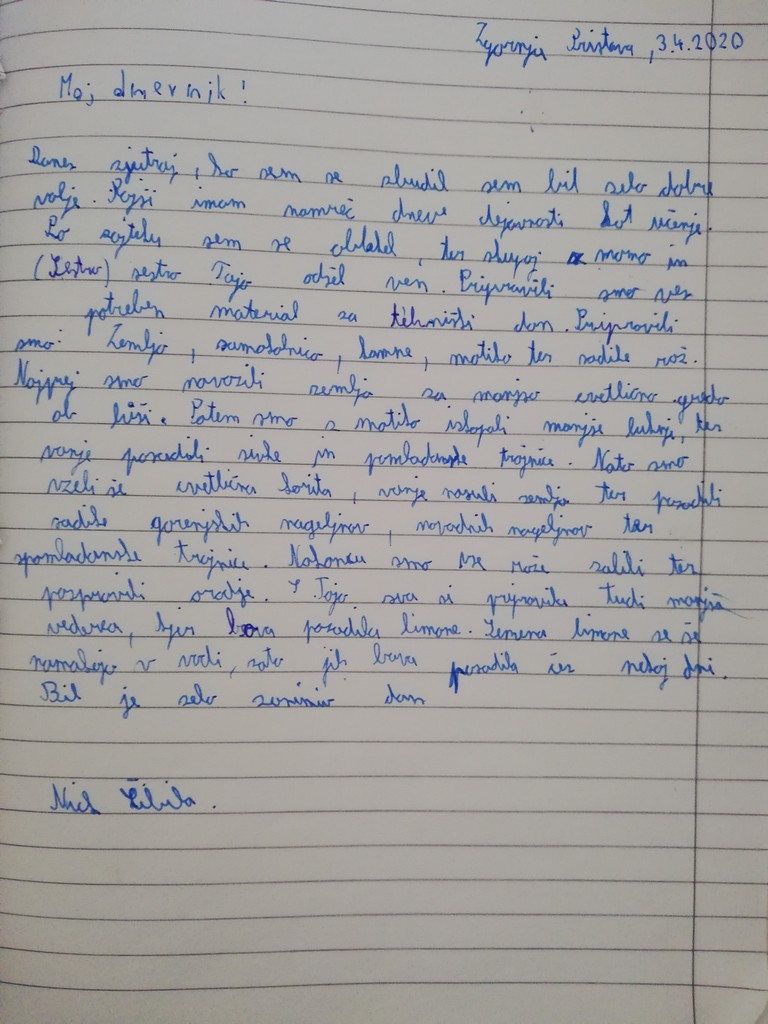 Zgornja Pristava, 3.4.2020
Moj dnevnik!
Danes zjutraj, ko sem se zbudil sem bil zelo dobre
volje. Rajši imam namreč dneve dejavnosti kot učenje.
Po zajtrku sem se oblekel, ter skupaj z mamo in
(Sestro) sestro Tajo odšel ven. Pripravili smo ves
potreben material za tehniški dan. Pripravili
smo: Zemljo, samokolnico, kamne, motiko ter sadike rož.
Najprej smo navozili zemljo za manjšo cvetlično gredo
ob hiši. Potem smo z motiko izkopali manjše luknje, ter
vanje posadili sivke in pomladanske trojnice. Nato smo
vzeli še cvetlična korita, vanje nasuli zemljo ter posadili
sadike gorenjskih nageljnov, navadnih nageljnov ter
spomladanske trojnice. Nakoncu smo vse rože zalili ter
pospravili orodje. S Tajo sva si pripravila tudi manjša
vederca, kjer bova posadila limone. Semena limone se še
namakajo v vodi, zato jih bova posadila čez nekaj dni.
Bil je zelo zanimiv dan
Nick Žibila.